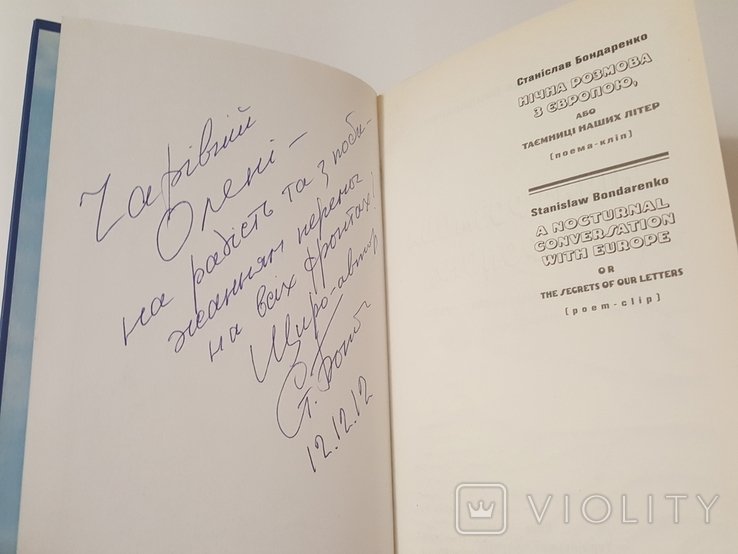 Чарівній
Олені –
на радість та з поба-
жанням перемог
на всіх фронтах!
Щиро – автор
Ст. Бонд
12.12.12
Станіслав Бондаренко
НІЧНА РОЗМОВА
З ЄВРОПОЮ,
АБО
ТАЄМНИЦІ НАШИХ ЛІТЕР
(поема-кліп)
Stanislaw Bondarenko
A NOCTURNAL
CONVERSATION
WITH EUROPE
OR
THE SECRETS OF OUR LETTERS
(poem-clip)
VIOLITY